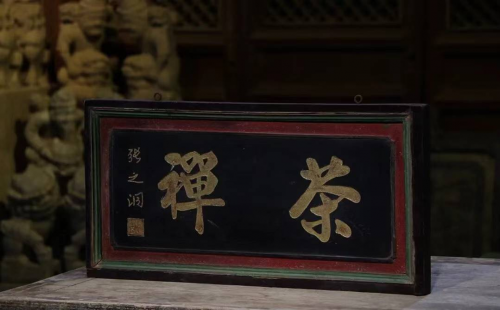 茶禪
張之洞